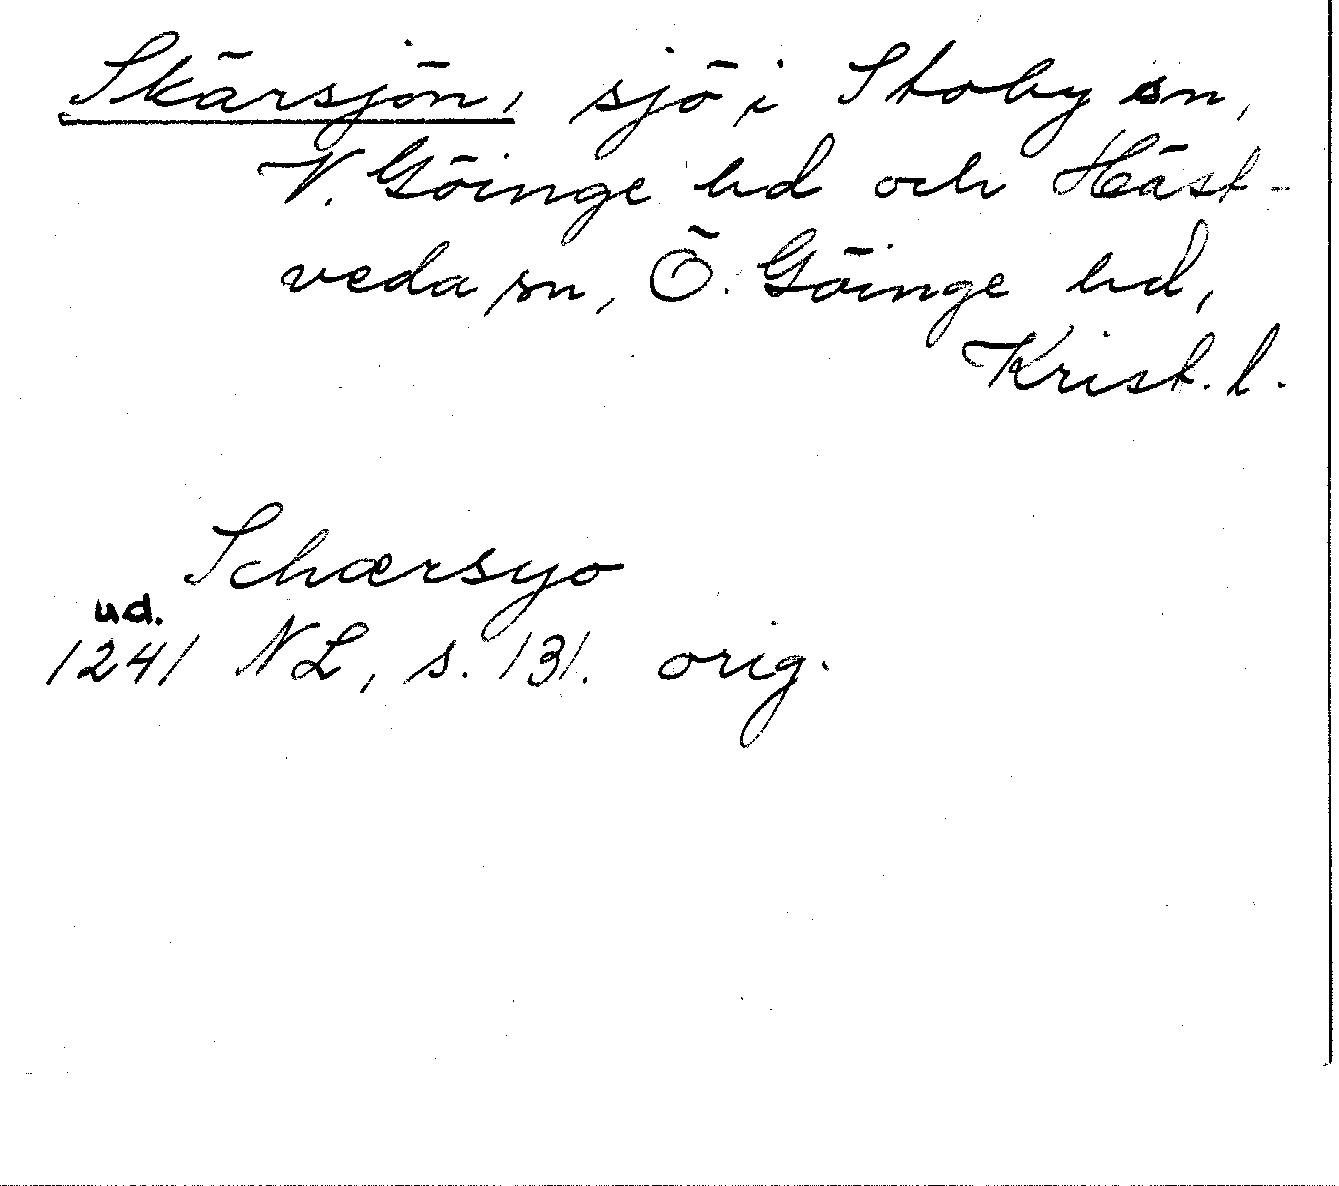 Skärsjön, sjö i Stoby sn,
V. Göinge hd och Häst-
veda sn, Ö. Göinge hd,
Krist. l.
Schærsyo
ud.
1241 NL, s. 131. orig.